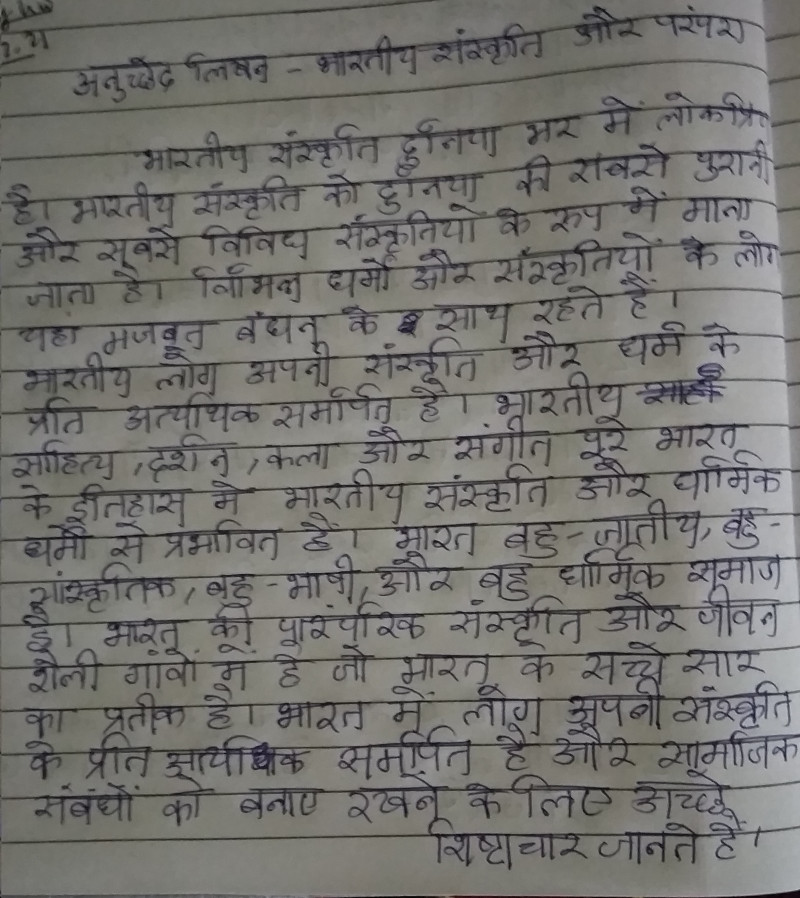 अनुच्छेद लिखन - भारतीय संस्कृति और परंपरा
भारतीय संस्कृति दुनिया भर में लोकप्रि
है। भारतीय संस्कृति को दुनिया की सबसे पुरानी
और सबसे विविध संस्कृतियों के रूप में माना
जाता है। विभिन्न धर्मों और संस्कृतियों के लोग
यहां मजबूत बंधन के साथ रहते हैं।
भारतीय लोग अपनी संस्कृति और धर्म के
प्रति अत्यधिक समर्पित है। भारतीय
साहित्य, दर्शन, कला और संगीत पूरे भारत
के इतिहास में भारतीय संस्कृति और धार्मिक
धर्मों से प्रभावित हैं। भारत बहु-जातीय, बहु-
सांस्कृतिक, बहु-भाषी, और बहु धार्मिक समाज
है। भारत की पारंपरिक संस्कृति और जीवन
शैली गांवों में है जो भारत के सच्चे सार
का प्रतीक है। भारत में लोग अपनी संस्कृति
के प्रति अत्यधिक समर्पित है और सामाजिक
संबंधों को बनाए रखने के लिए अच्छे
शिष्टाचार जानते हैं।